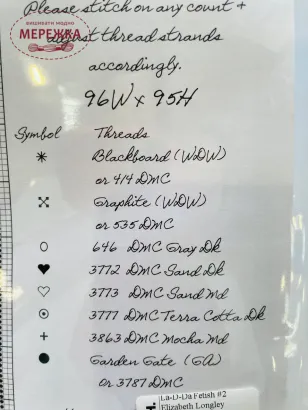 Please stitch on any count +
вишивати модно
МЕРЕЖКА
adjust thread strands
accordingly.
96W x 95H
Symbol Threads
Blackboard (WDW)
or 414 DMC
Graphite (WDW)
or 535 DMC
646 DMC Gray Dk
3772 DMC Sand Dk
3773 DMC Sand Md
3777 DMC Terra Cotta Dk
3863 DMC Mocha Md
Garden Gate (GA)
or 3787 DMC
La-D-Da Fetish #2
Elizabeth Longley